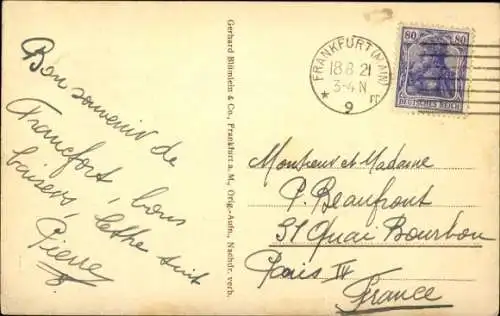 Bon souvenir de
Francfort, bons
baisers, lettre suit
Pierre
Gerhard Blümlein & Co., Frankfurt a. M., Orig.-Aufn., Nachdr. verb.
FRANKFURT (MAIN)
18.8.21
3-4 N
* 9
80 80
DEUTSCHES REICH
Monsieur et Madame
P. Beaufront
31 Quai Bourbon
Paris IV
France